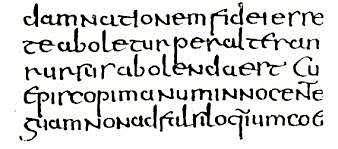 damnationem fidei esse
te aboletur per alteran
rursus abolenda est Cū
Episcopi manum innocentē
guam non ad falsiloq̄ium coe